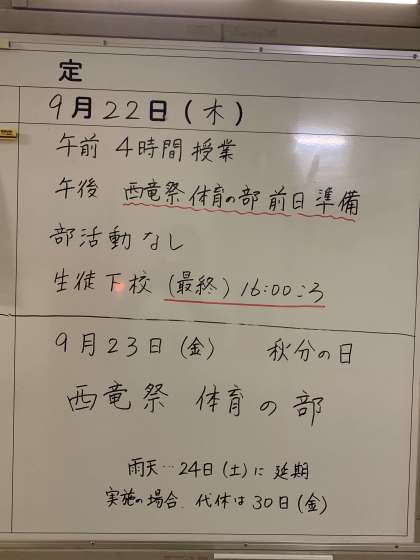 定
9月22日(木)
午前 4時間授業
午後 西竜祭体育の部前日準備
部活動なし
生徒下校 (最終) 16:00ころ
9月23日(金) 秋分の日
西竜祭 体育の部
雨天…24日(土)に延期
実施の場合、代休は30日(金)